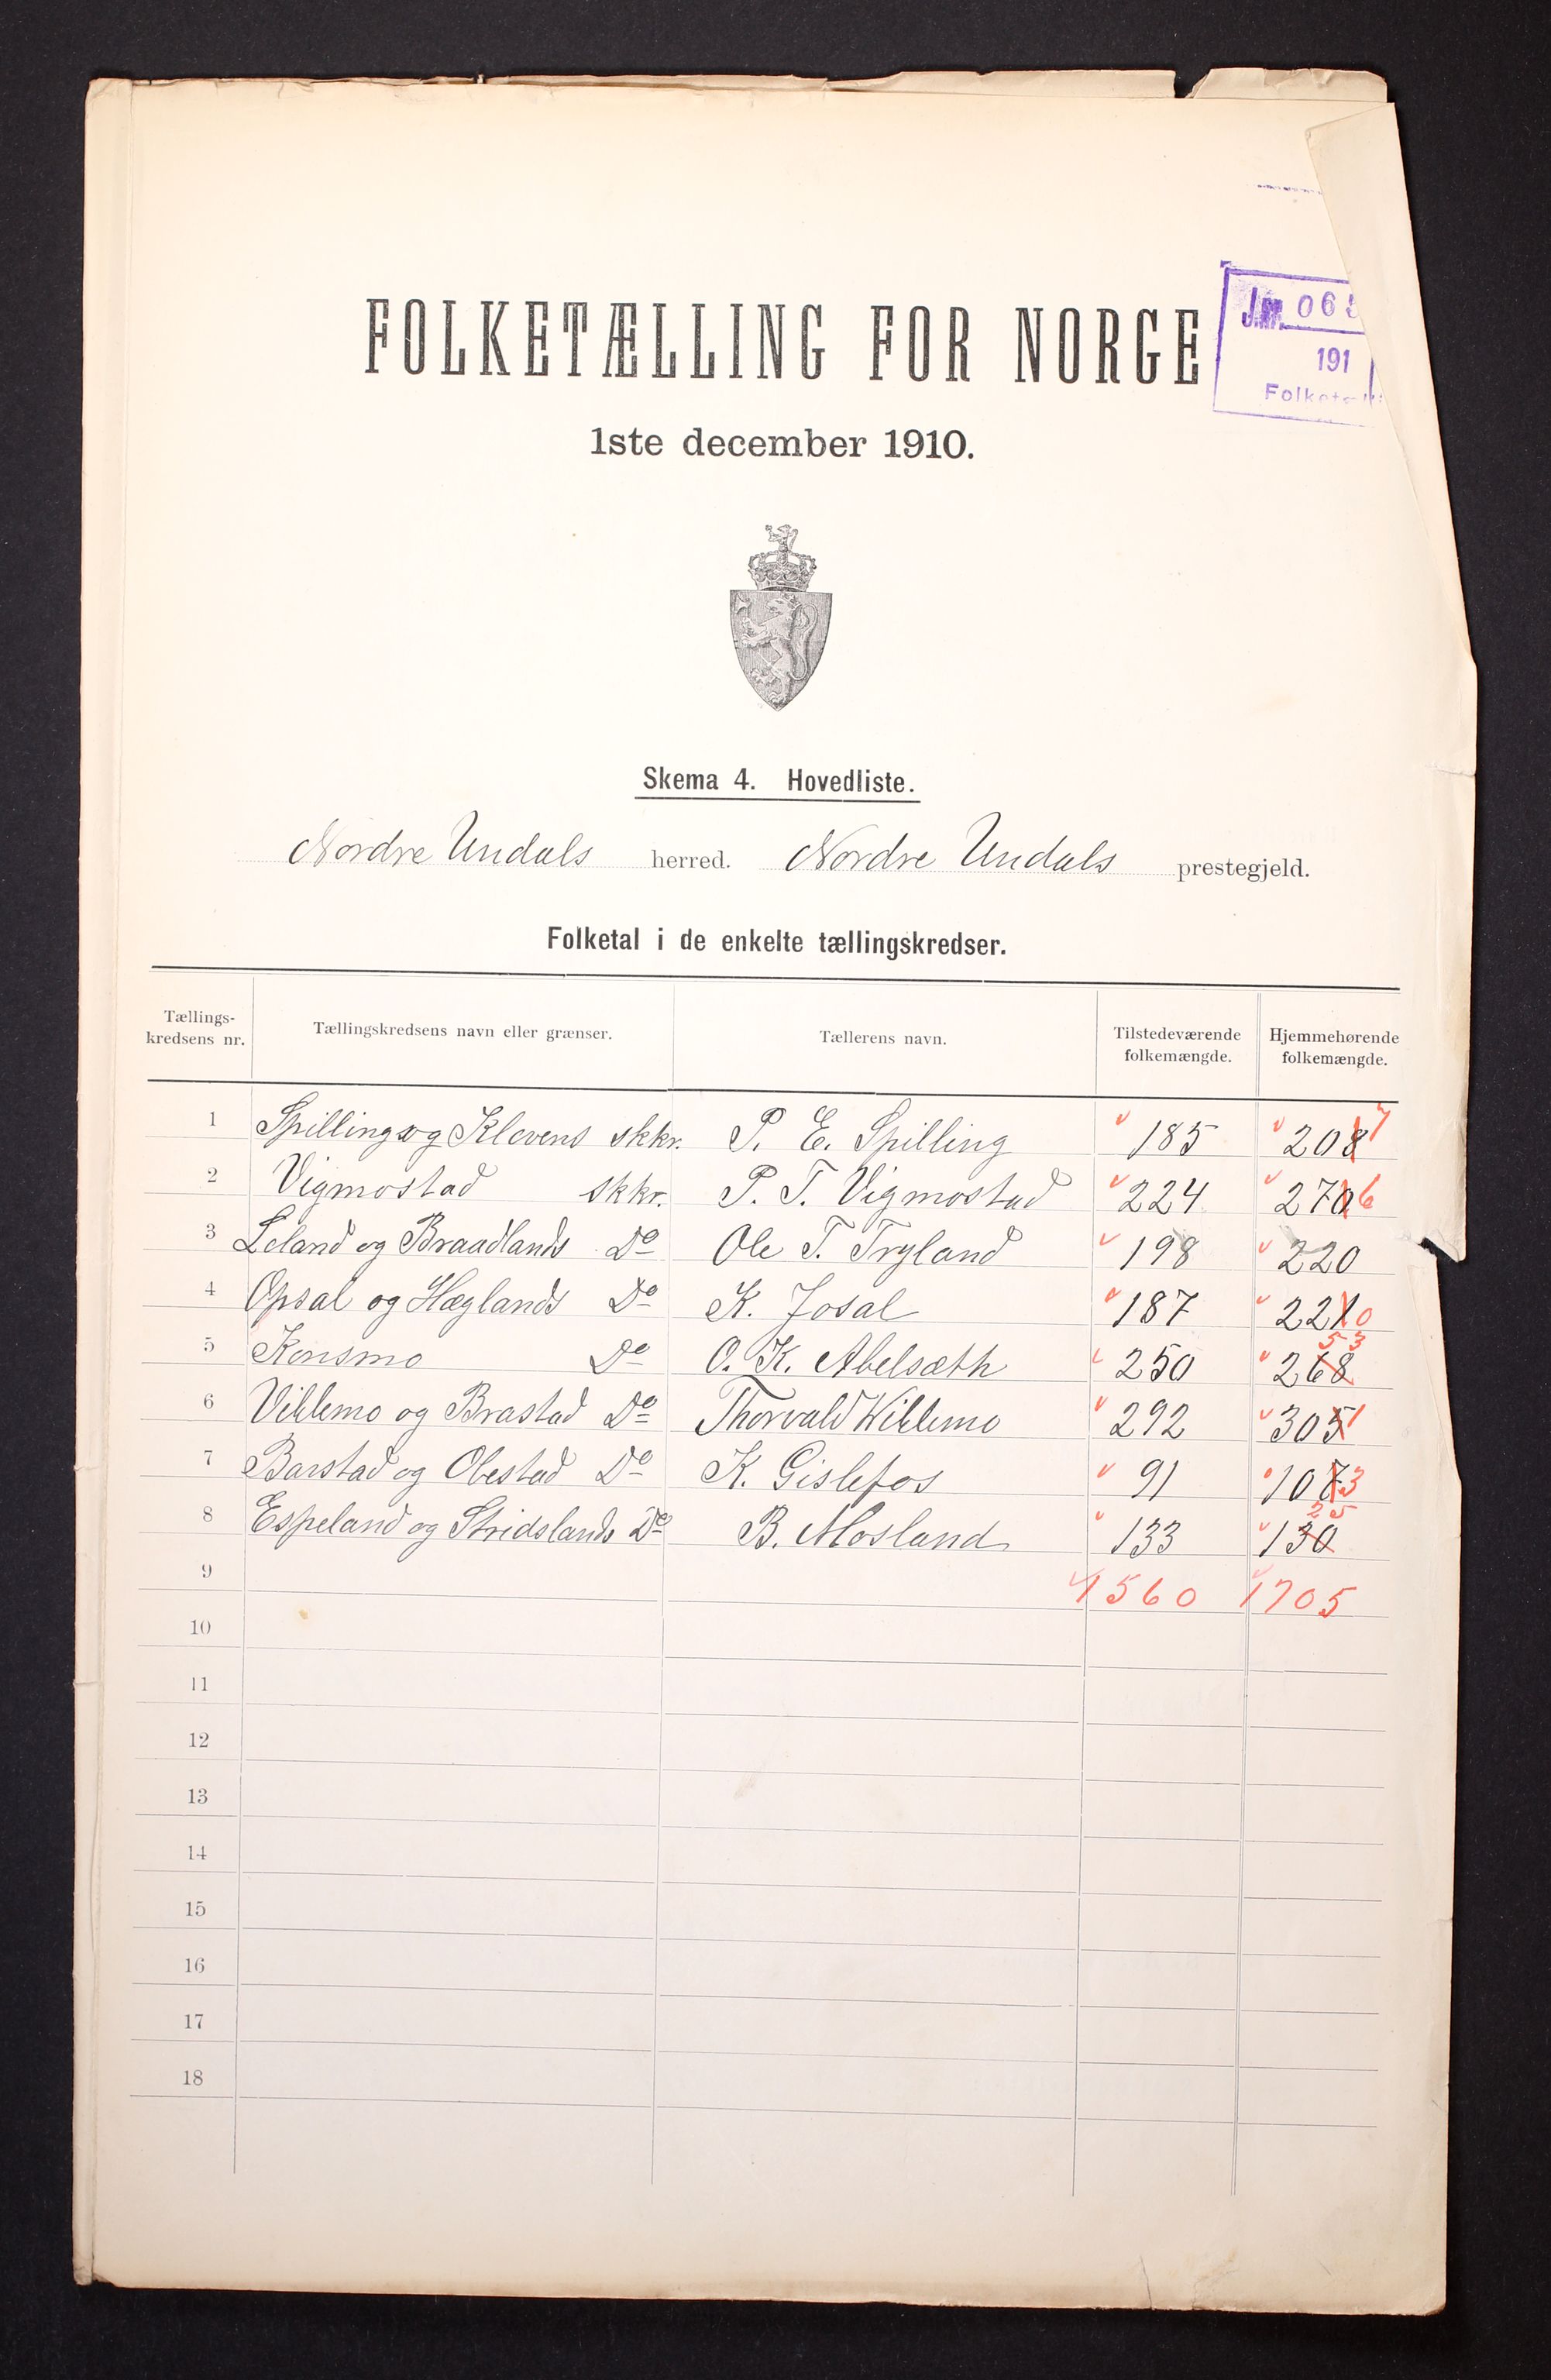 Jnr. 06
191
FOLKETÆLLING FOR NORGE
1ste december 1910.
Skema 4. Hovedliste.
Nordre Undals herred. Nordre Undals prestegjeld.
Folketal i de enkelte tællingskredser.
Tællings-kredsens nr. Tællingskredsens navn eller grænser. Tællerens navn. Tilstedeværende folkemængde. Hjemmehørende folkemængde.
1 Spilling og Klevens skkr. P. E. Spilling 185 208 7
2 Vigmostad skkr. P. T. Vigmostad 224 270 6
3 Leland og Braadlands Do Ole T. Tryland 198 220
4 Opsal og Hæglands Do K. Josal 187 221 0
5 Konsmo Do O. K. Abelsæth 250 268 53
6 Viblemo og Brastad Do Thorvald Wiblemo 292 305 1
7 Barstad og Obestad Do K. Gislefos 91 107 3
8 Espeland og Stridslands Do B. Mosland 133 130 25
9 1560 1705
10
11
12
13
14
15
16
17
18